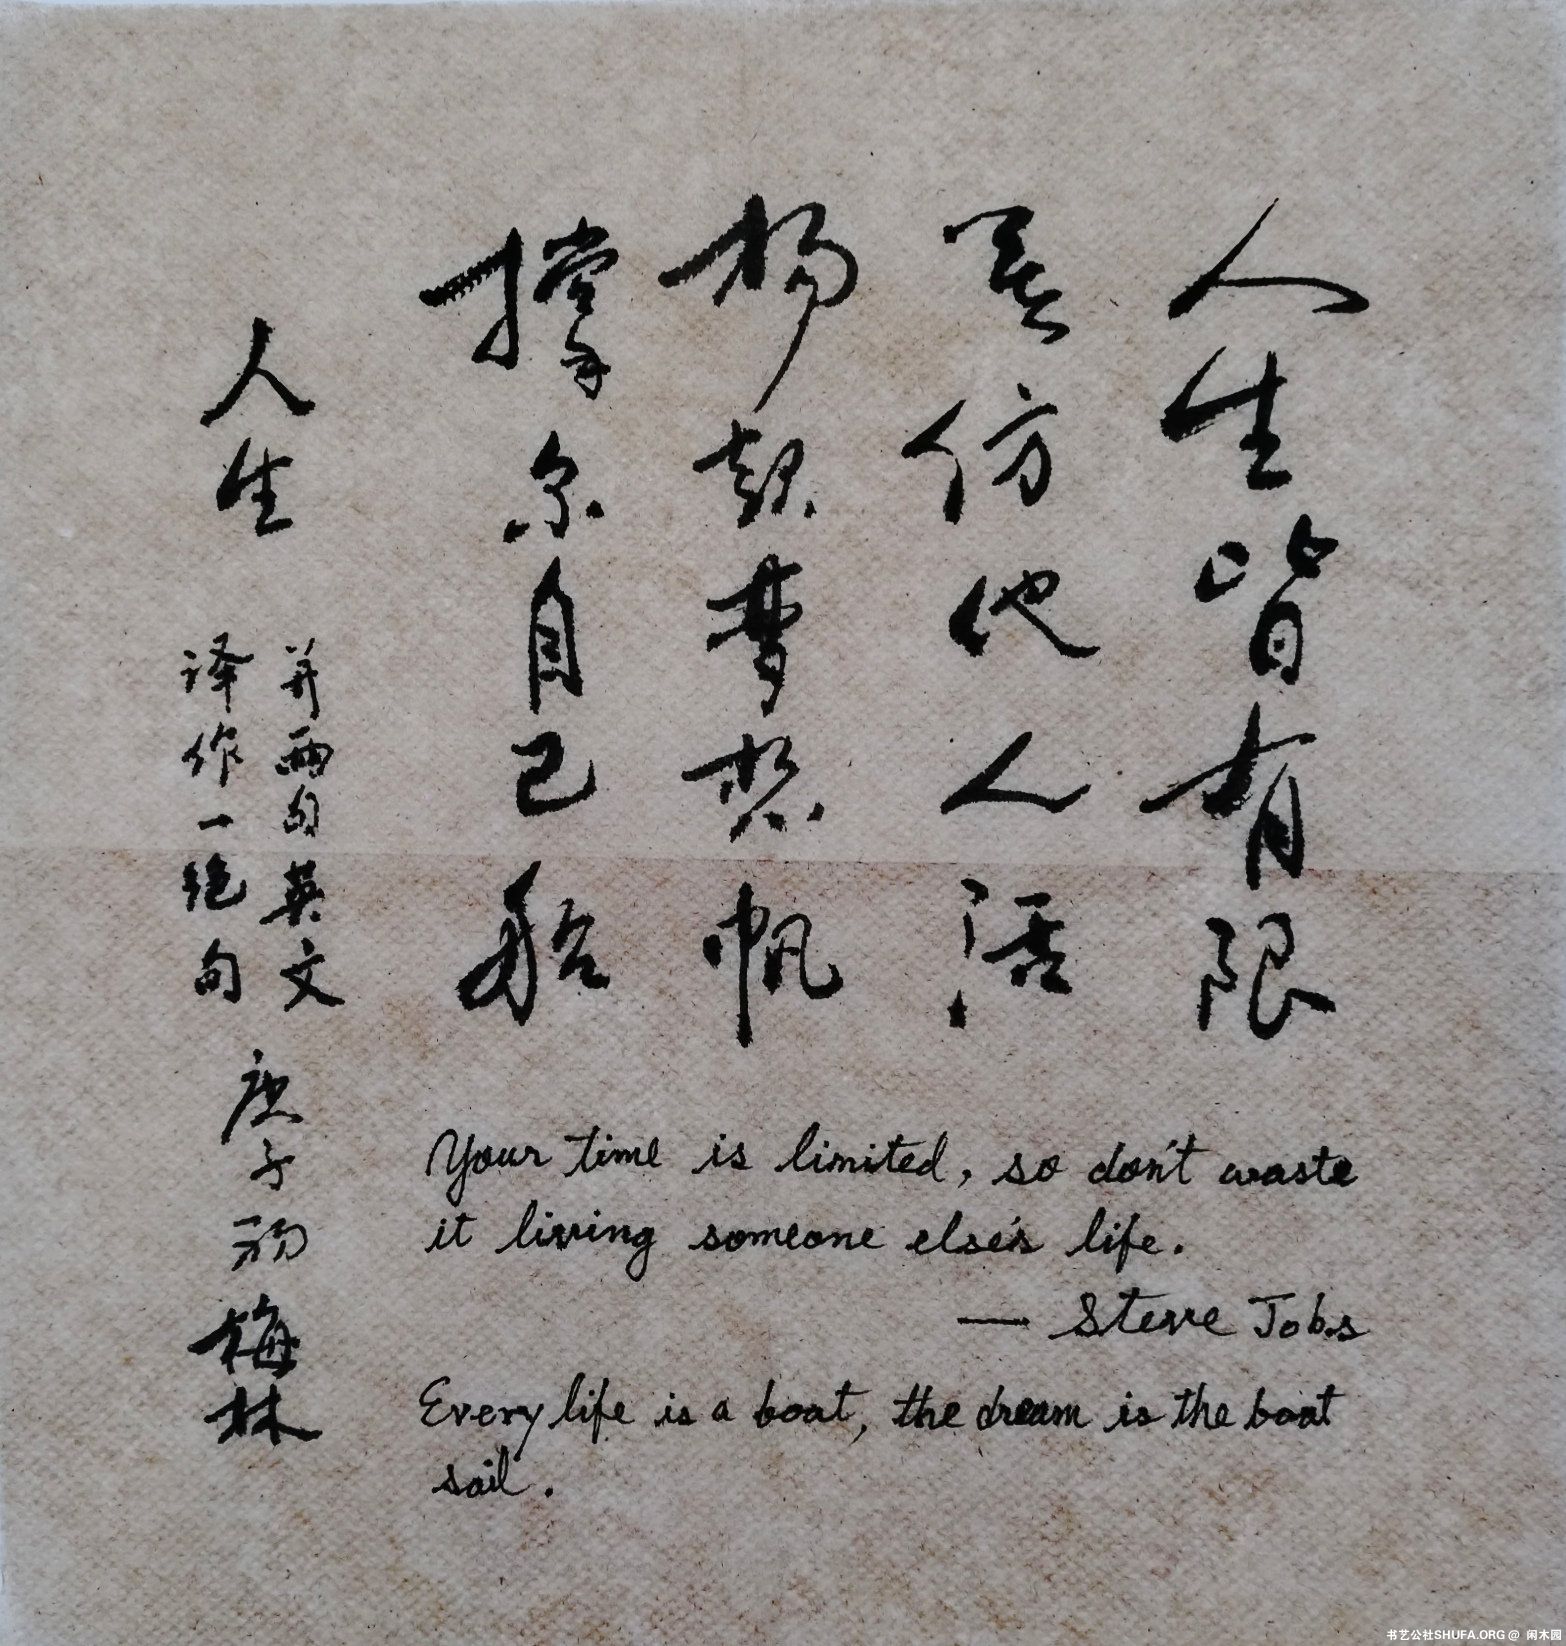 人生皆有限
莫仿他人活
扬起夢想帆
撑尔自己船
人生
并两句英文
译作一绝句
庚子初 梅林
Your time is limited, so don't waste
it living someone else's life.
— Steve Jobs
Every life is a boat, the dream is the boat
sail.
书艺公社SHUFA.ORG @ 闲木园